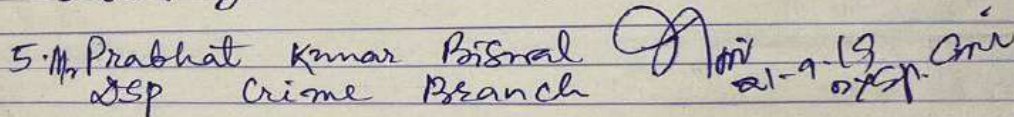 5. Mr Prabhat Kumar Biswal 21-9-19
DSP Crime Branch DySP.